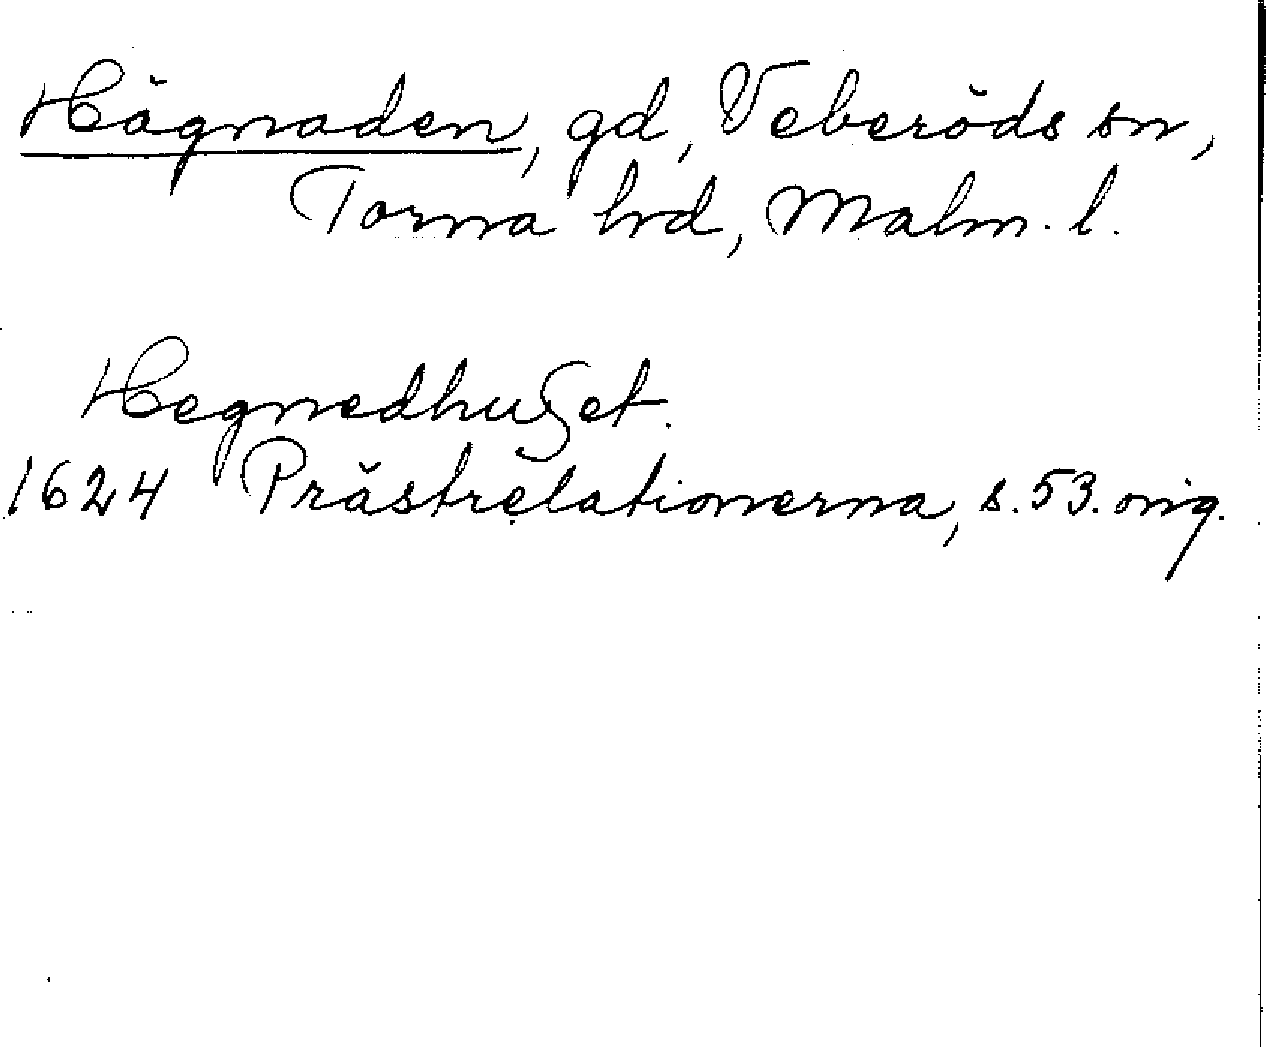 Hägnaden, gd, Veberöds sn,
Torna hd, Malm. l.
Hegnedhuset.
1624 Prästrelationerna, s. 53. orig.